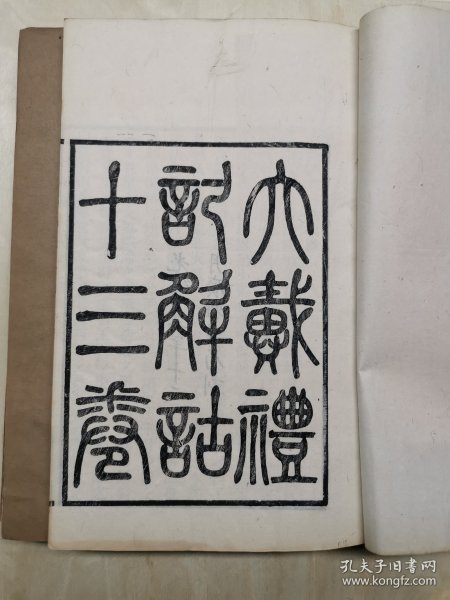 大戴禮
記解詁
十三卷
孔夫子旧书网
www.kongfz.com